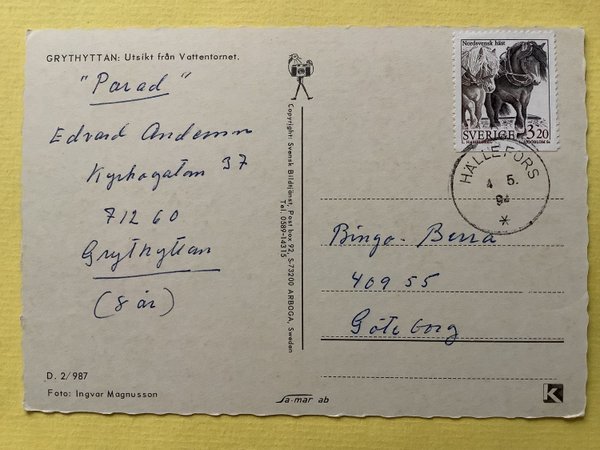 GRYTHYTTAN: Utsikt från Vattentornet.
"Parad"
Edvard Andersson
Kyrkogatan 37
712 60
Grythyttan
(8 år)
D. 2/987
Foto: Ingvar Magnusson
Copyright: Svensk Bildtjänst, Post box 92, S-73200 ARBOGA, Sweden
Tel. 0589-14315
Sa-mar ab
Nordsvensk häst
SVERIGE 3 20
HÄLLEFORS
4 5.
94
*
Bingo-Berra
409 55
Göteborg
K